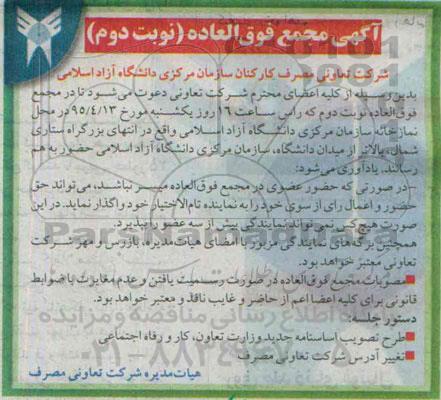 آگهی مجمع فوق‌العاده (نوبت دوم)
شرکت تعاونی مصرف کارکنان سازمان مرکزی دانشگاه آزاد اسلامی
بدین وسیله از کلیه اعضای محترم شرکت تعاونی دعوت می‌شود تا در مجمع
فوق‌العاده نوبت دوم که راس ساعت ۱۶ روز یکشنبه مورخ ۹۵/۴/۱۳ در محل
نمازخانه سازمان مرکزی دانشگاه آزاد اسلامی واقع در انتهای بزرگراه ستاری
شمال، بالاتر از میدان دانشگاه، سازمان مرکزی دانشگاه آزاد اسلامی حضور به هم
رسانند. یادآوری می‌شود:
-در صورتی که حضور عضوی در مجمع فوق‌العاده میسر نباشد، می‌تواند حق
حضور و اعمال رای از سوی خود را به نماینده تام‌الاختیار خود واگذار نماید. در این
صورت هیچ کس نمی‌تواند نمایندگی بیش از سه عضو را بپذیرد.
همچنین برگه‌های نمایندگی مزبور با امضای هیات‌مدیره، بازرس و مهر شرکت
تعاونی معتبر خواهد بود.
■مصوبات مجمع فوق‌العاده در صورت رسمیت یافتن و عدم مغایرت با ضوابط
قانونی برای کلیه اعضا اعم از حاضر و غایب نافذ و معتبر خواهد بود.
دستور جلسه:
■طرح تصویب اساسنامه جدید وزارت تعاون، کار و رفاه اجتماعی
■تغییر آدرس شرکت تعاونی مصرف
هیات مدیره شرکت تعاونی مصرف